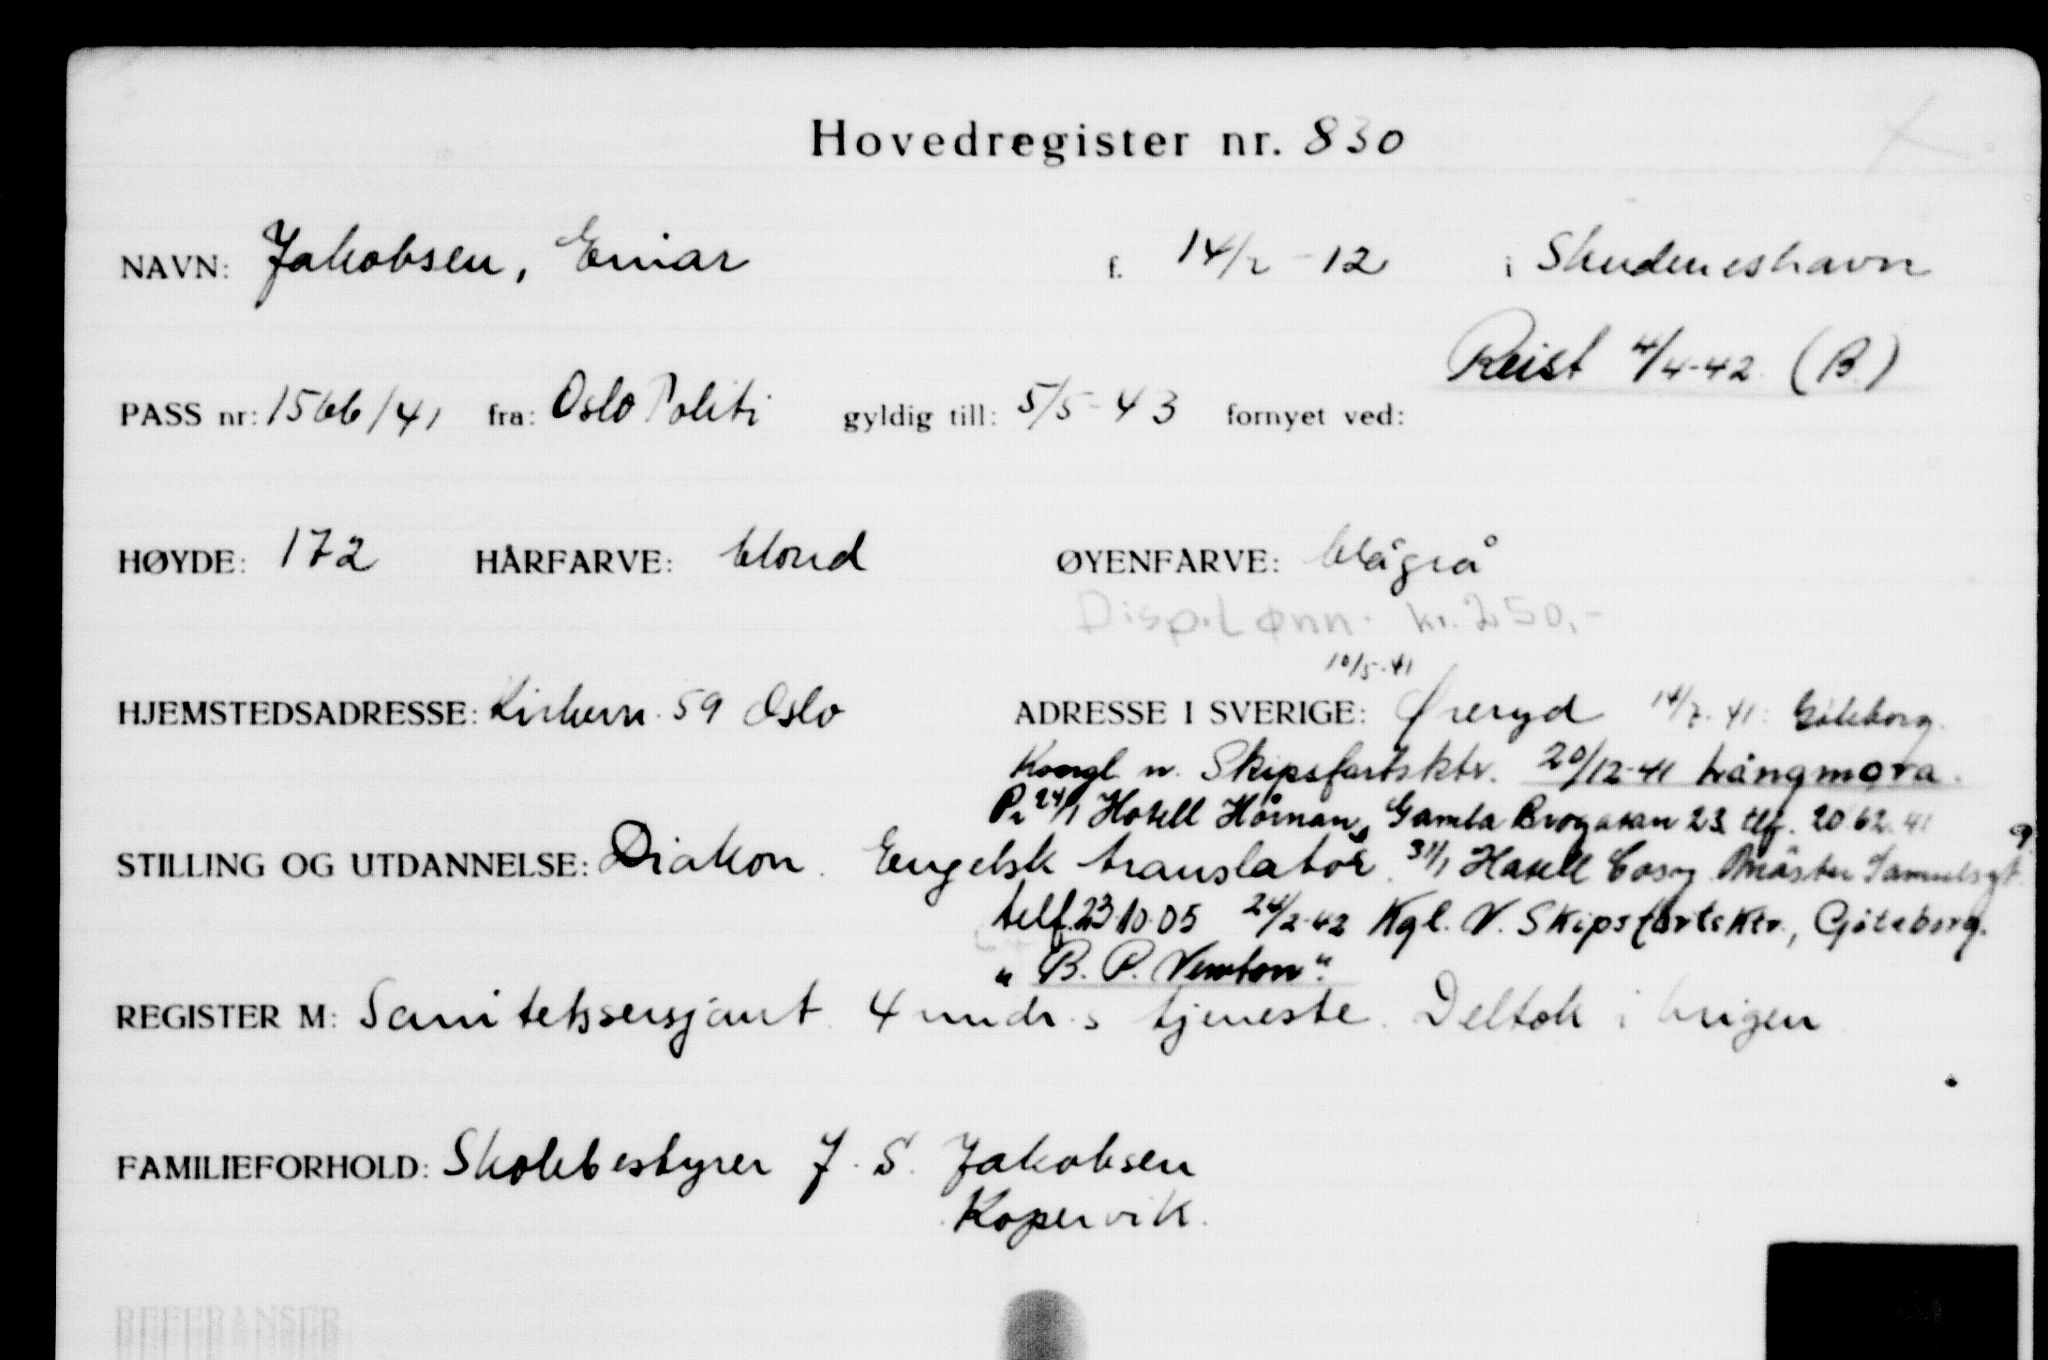 Hovedregister nr. 830
NAVN: Jakobsen, Einar f. 14/2-12 i Skudeneshavn
Reist 4/4-42 (B)
PASS nr: 1566/41 fra: Oslo Politi gyldig till: 5/5-43 fornyet ved:
HØYDE: 172 HÅRFARVE: blond ØYENFARVE: blågrå
Disp. Lønn. kr. 250,-
10/5-41
HJEMSTEDSADRESSE: Kirkevn. 59 Oslo ADRESSE I SVERIGE: Øreryd 14/7-41: Göteborg.
Kongl. n. Skipsfartsktr. 20/12-41 Långmora.
24/1 Hotell Hörnan, Gamla Brogatan 23 tlf. 20 62 41
STILLING OG UTDANNELSE: Diakon. Engelsk translatør. 31/1 Hotell Cosy Mäster Samuelsgt. 9
telf. 23 10 05 24/2-42 Kgl. N. Skipsfartsktr., Göteborg.
"B. P. Newton".
REGISTER M: Sanitetssersjant. 4 mndr.s tjeneste. Deltok i krigen
FAMILIEFORHOLD: Skolebestyrer J. S. Jakobsen
Kopervik.
REFERANSER